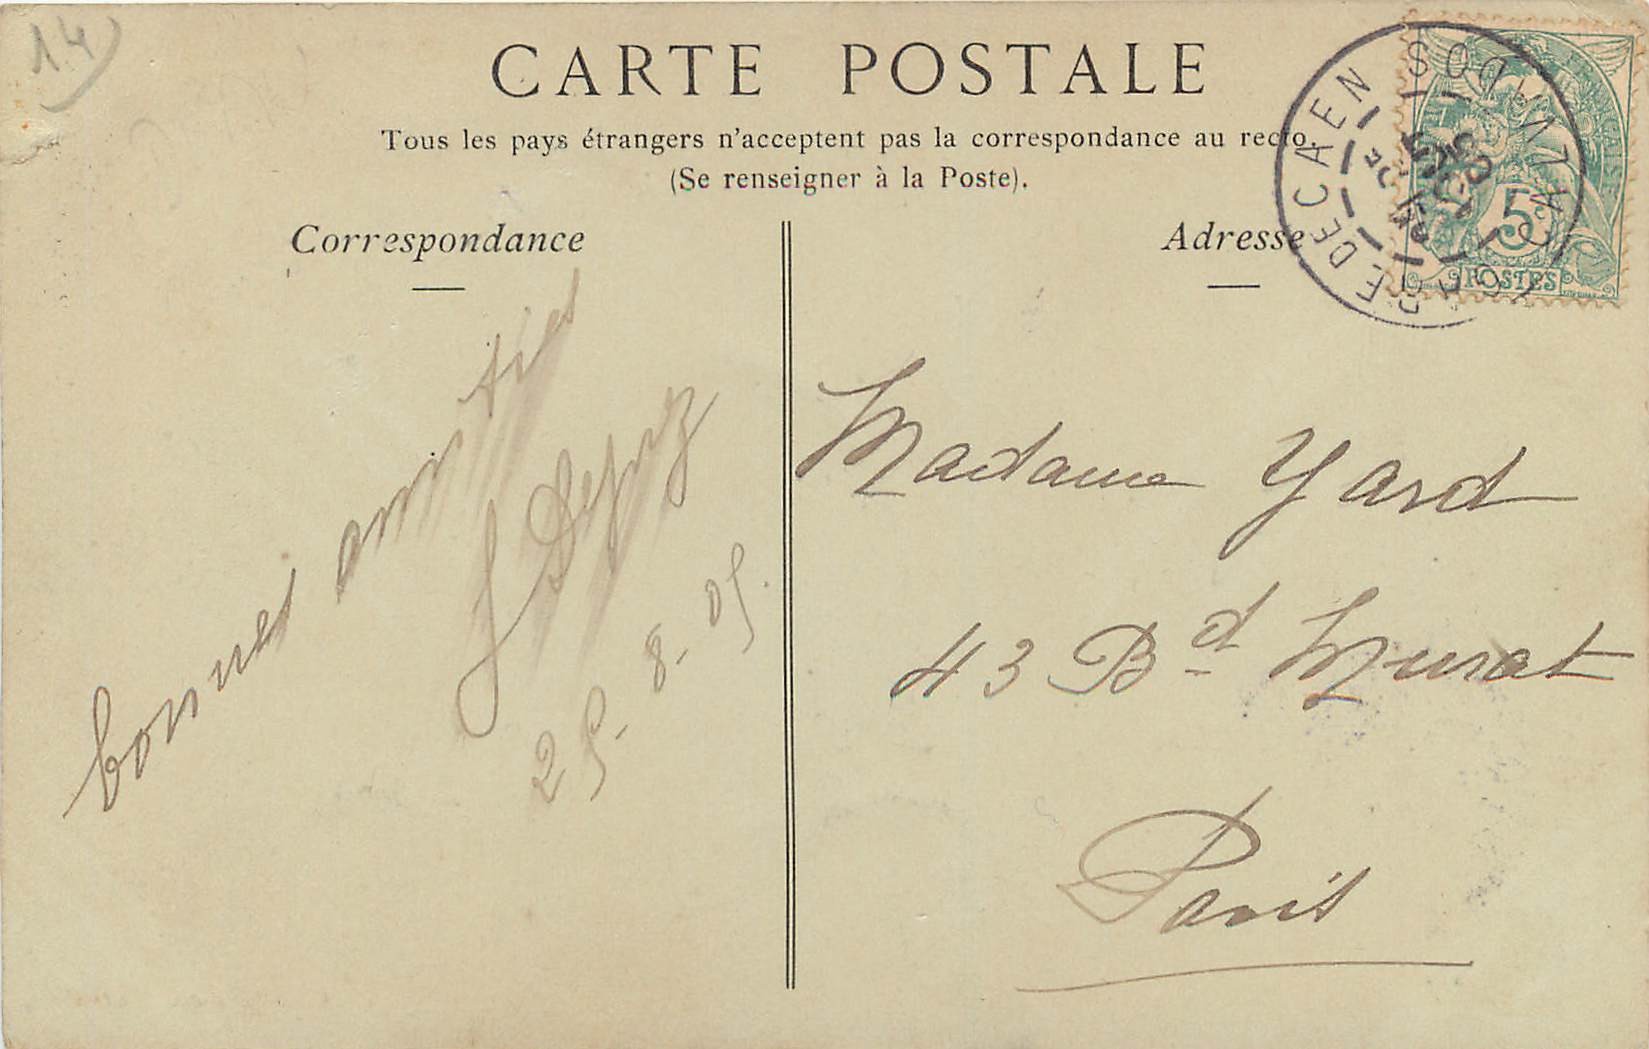 14
CARTE POSTALE
Tous les pays étrangers n'acceptent pas la correspondance au recto.
(Se renseigner à la Poste).
Correspondance
bonnes amitiés
25-8-05.
Adresse
Madame Yard
43 Bd Murat
Paris
GARE DE CAEN
CALVADOS
5c
POSTES